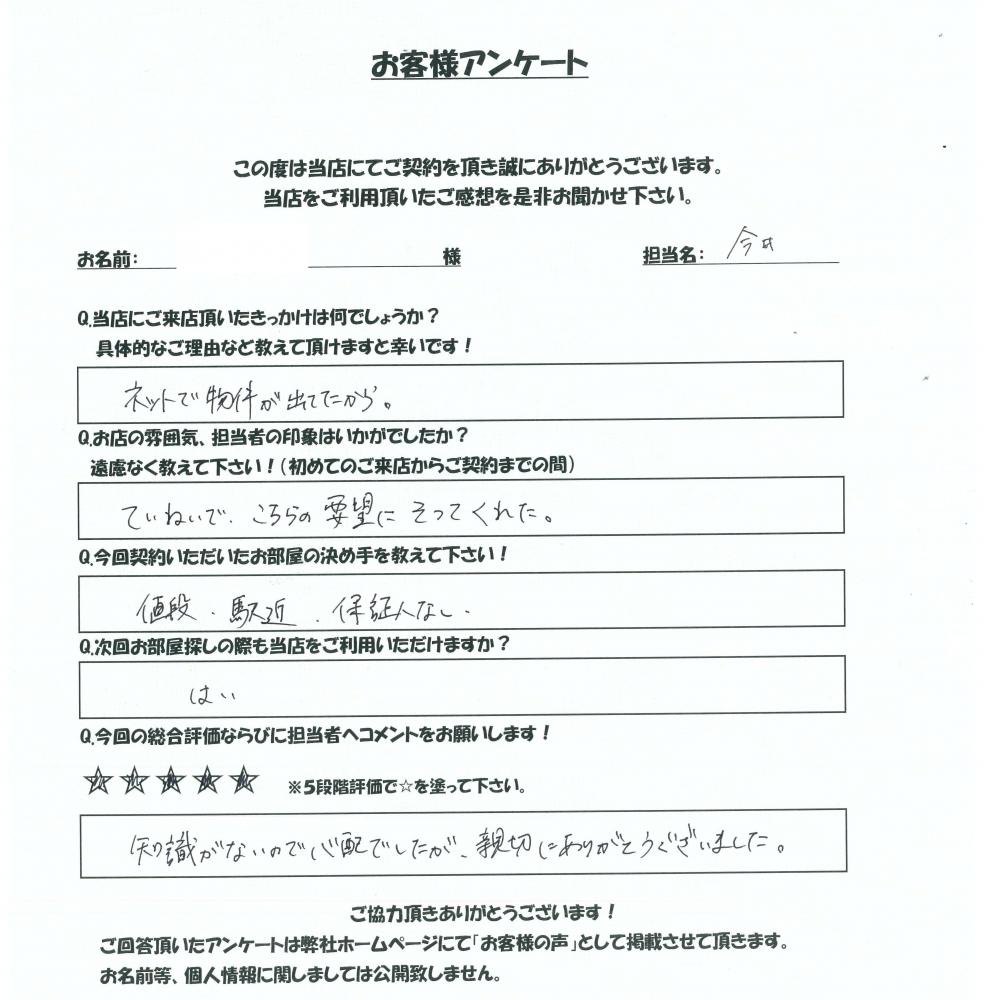 お客様アンケート
この度は当店にてご契約を頂き誠にありがとうございます。
当店をご利用頂いたご感想を是非お聞かせ下さい。
お名前： 様 担当名： 今井
Q.当店にご来店頂いたきっかけは何でしょうか？
具体的なご理由など教えて頂けますと幸いです！
ネットで物件が出てたから。
Q.お店の雰囲気、担当者の印象はいかがでしたか？
遠慮なく教えて下さい！（初めてのご来店からご契約までの間）
ていねいで、こちらの要望にそってくれた。
Q.今回契約いただいたお部屋の決め手を教えて下さい！
値段、駅近、保証人なし、
Q.次回お部屋探しの際も当店をご利用いただけますか？
はい
Q.今回の総合評価ならびに担当者へコメントをお願いします！
☆☆☆☆☆ ※5段階評価で☆を塗って下さい。
知識がないので心配でしたが、親切にありがとうございました。
ご協力頂きありがとうございます！
ご回答頂いたアンケートは弊社ホームページにて「お客様の声」として掲載させて頂きます。
お名前等、個人情報に関しましては公開致しません。